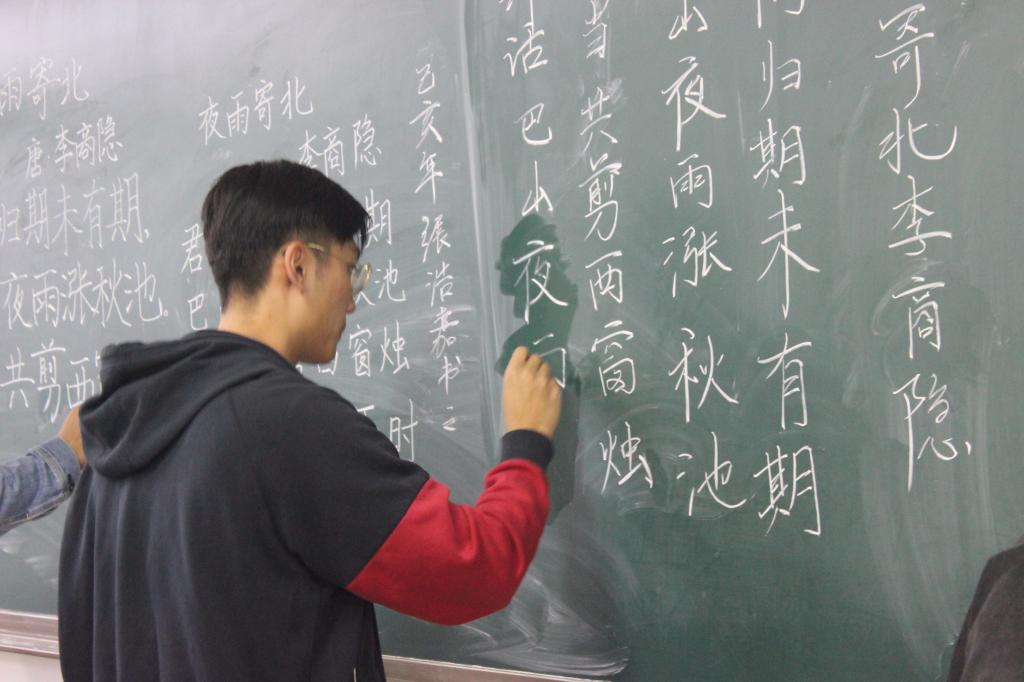 雨寄北
唐·李商隐
归期未有期,
夜雨涨秋池。
共剪西
夜雨寄北
李商隐
君 期
巴 池
窗烛
时
寄北李商隐
归期未有期
山夜雨涨秋池
当共剪西窗烛
话巴山夜
己亥年張浩嘉书之